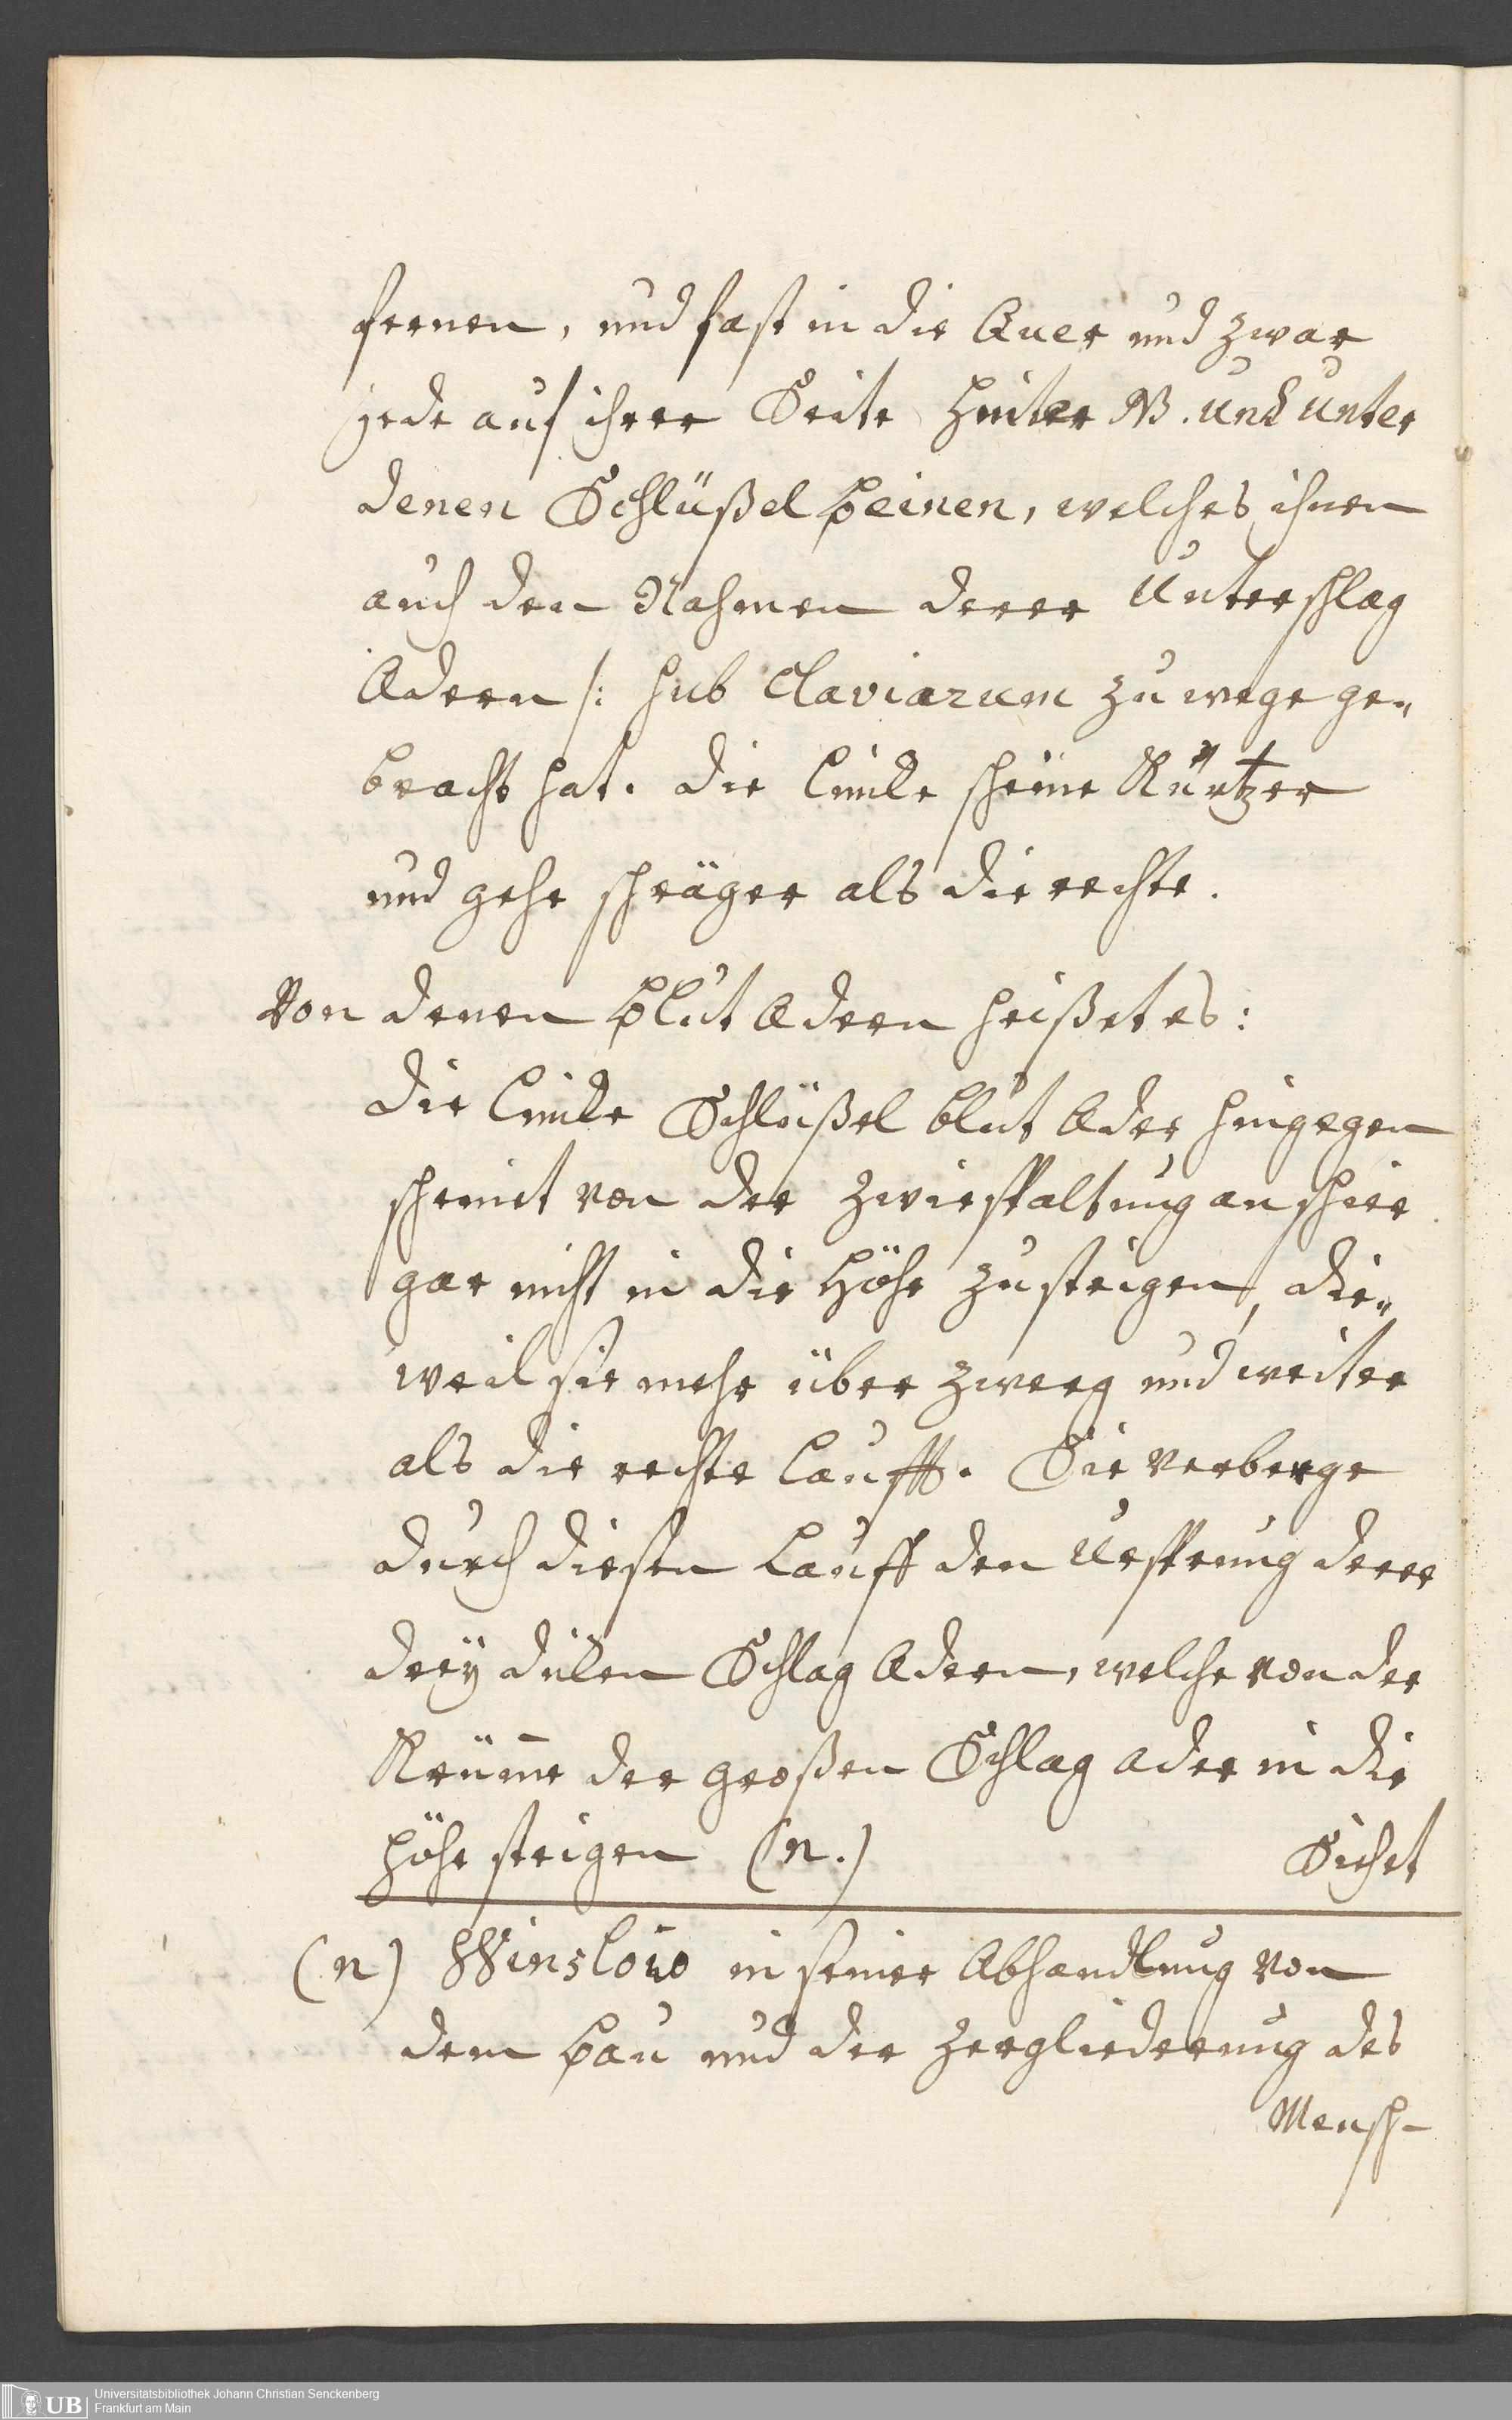 fernen, und fast in die Quer und zwar
jede auf ihrer Seite hinter NB. und unter
denen Schlüßel beinen, welches ihnen
auch den Nahmen derer Unterschlag
Adern /: sub Claviarum zu wege ge„
bracht hat. die lincke scheine Kürtzer
und gehe schräger als die rechte.
Von denen blut Adern heißet es:
die lincke Schlüßel blut Ader hingegen
scheinet von der Zwiespaltung an schier
gar nicht in die Höhe zu steigen, die„
weil sie mehr über zwerg und weiter
als die rechte laufft. Sie verberge
durch diesen lauff den Ursprung derer
drey dicken Schlag Adern, welche von der
Krüm̄e der großen Schlag ader in die
höhe steigen (n.)
Siehet
(n) Winslow in seiner Abhandlung von
dem bau und der Zergliederung des
Mensch-
Universitätsbibliothek Johann Christian Senckenberg
Frankfurt am Main
UB